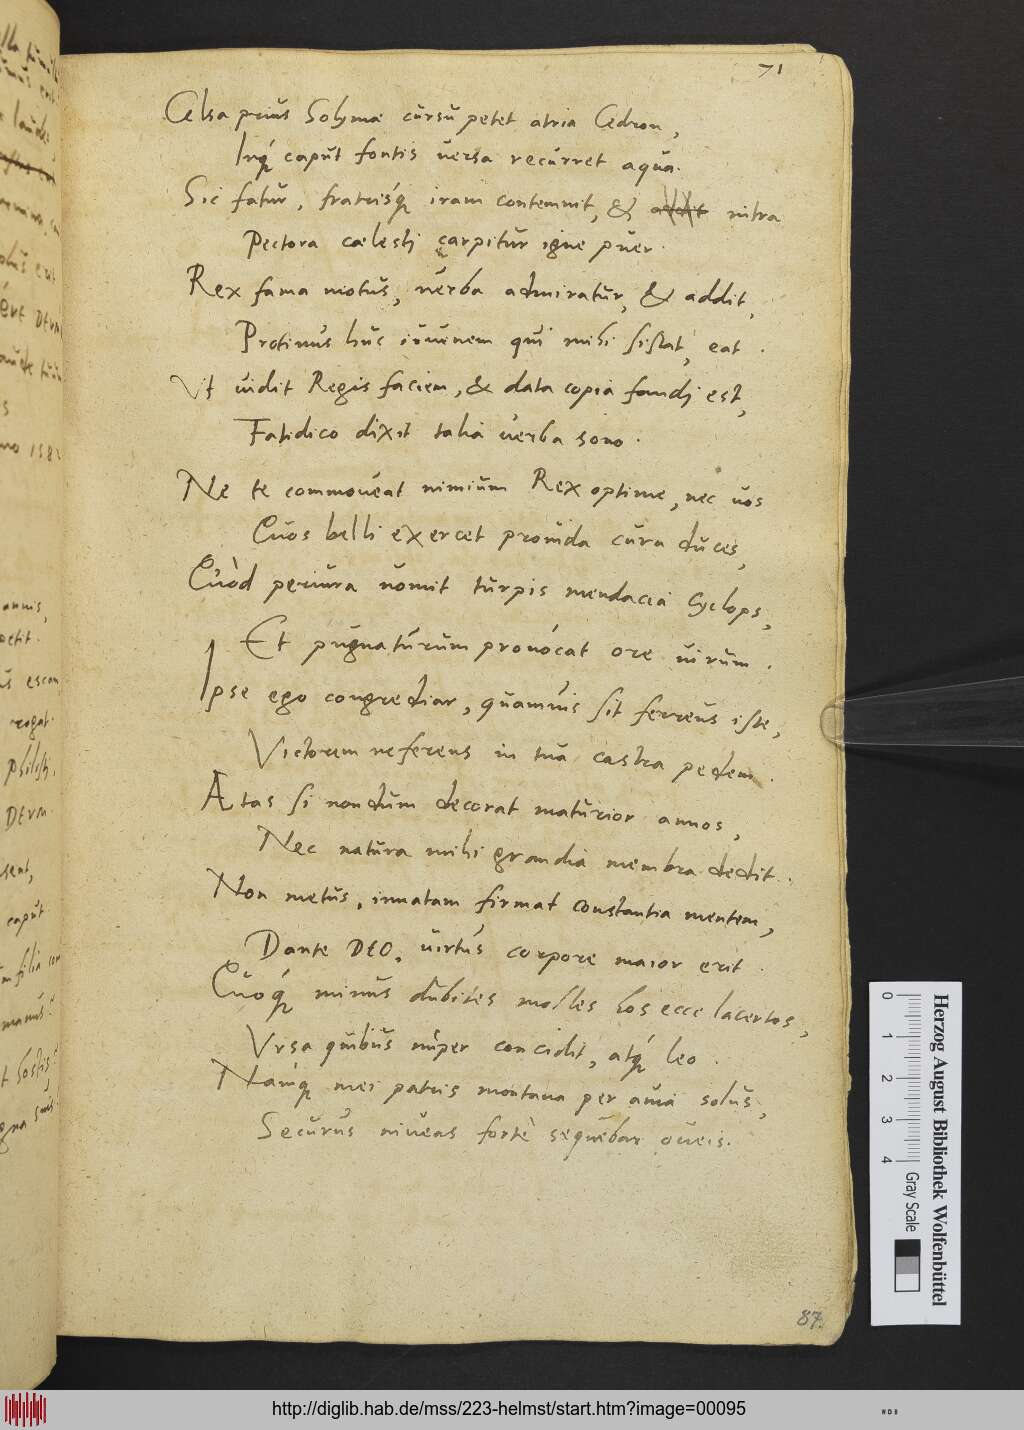 71
Celsa prius Solymæ cursu petet atria Cedron,
Inq́ caput fontis versa recurret aqua.
Sic fatur, fratrisq́ iram contemnit, & addit intra
Pectora cælesti carpitur igne puer.
Rex fama motus, verba admiratur, & addit,
Protinus huc iuvenem qui mihi sistat, eat.
Vt vidit Regis faciem, & data copia fandi est,
Fatidico dixit talia verba sono.
Ne te commoveat nimium Rex optime, nec vos
Quos belli exercet provida cura duces,
Quòd periura vomit turpis mendacia Cyclops,
Et pugnaturum provocat ore virum.
Ipse ego congrediar, quamvis sit ferreus iste,
Victorem referens in tua castra pedem.
Ætas si nondum decorat maturior annos,
Nec natura mihi grandia membra dedit.
Non metus, innatam firmat constantia mentem,
Dante DEO, virtus corpore maior erit.
Quoq́ minus dubites molles hos ecce lacertos,
Vrsa quibus nuper concidit, atq́ leo.
Namq́ mei patris montana per avia solus,
Securus niveas fortè sequebar oveis.
87.
Herzog August Bibliothek Wolfenbüttel
0 1 2 3 4
Gray Scale
http://diglib.hab.de/mss/223-helmst/start.htm?image=00095